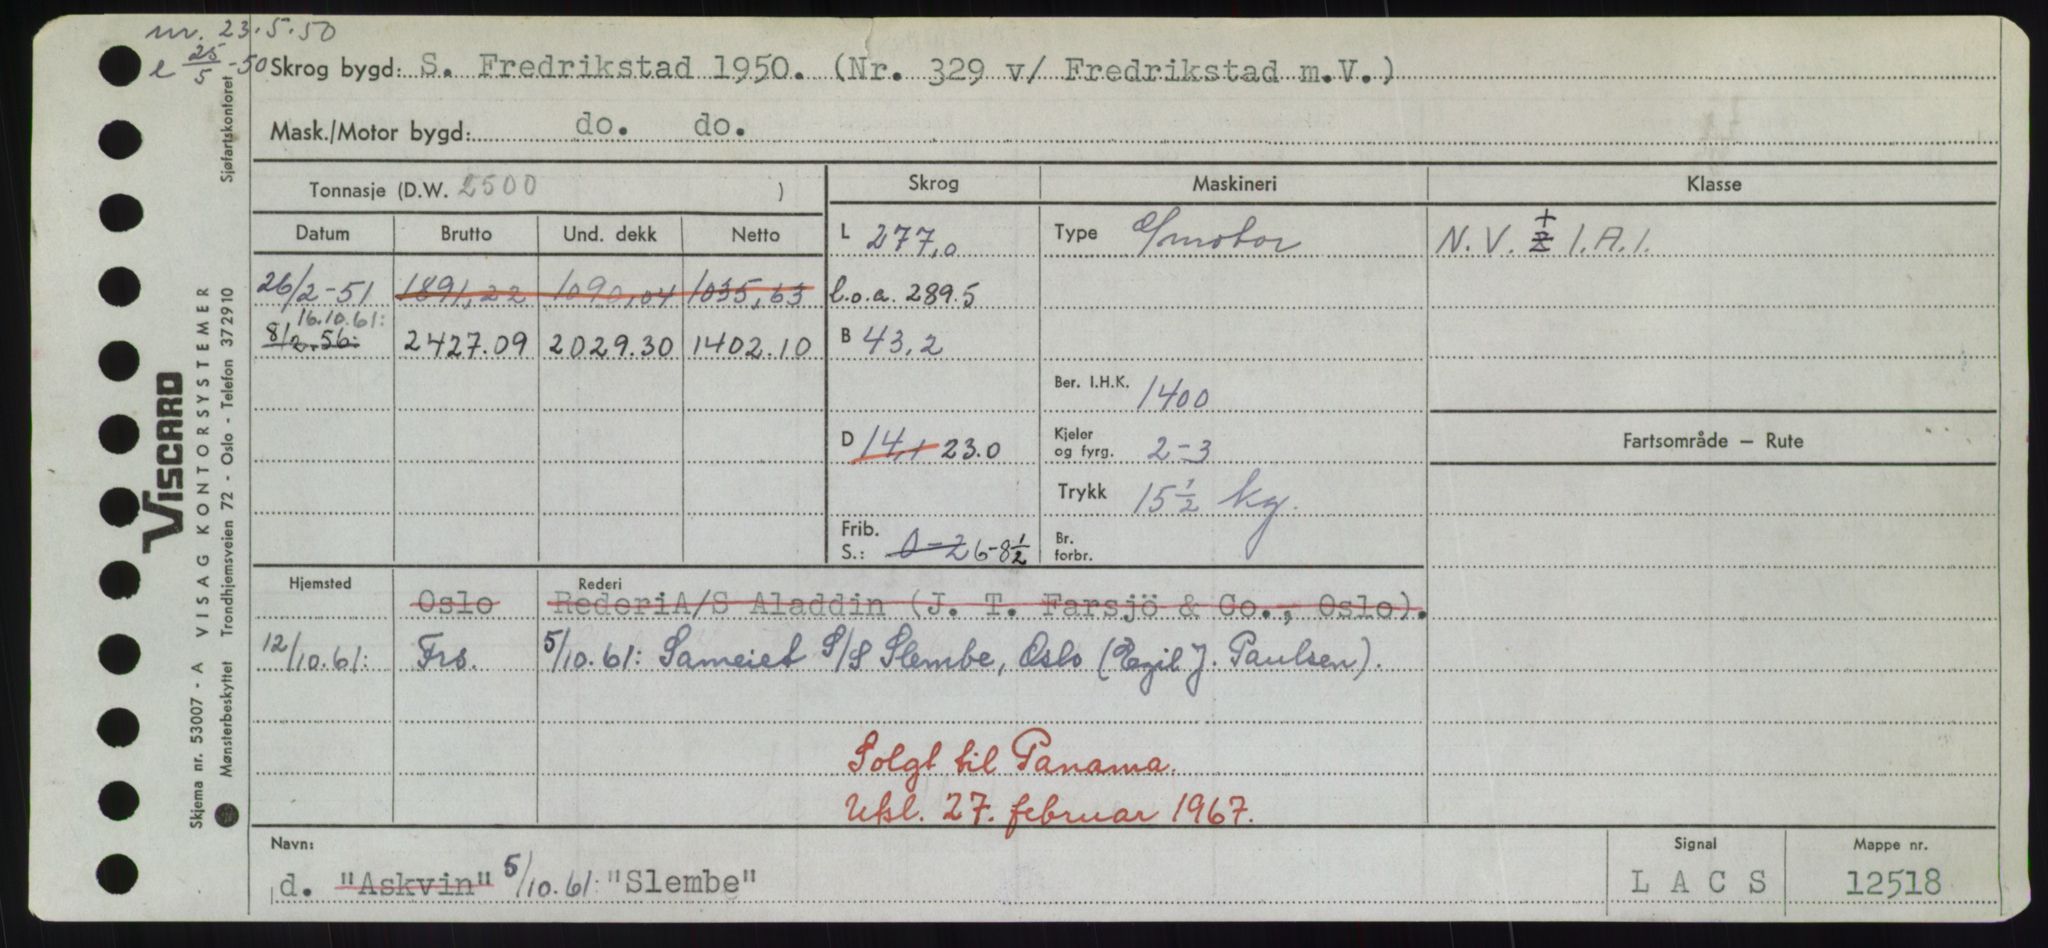 nr. 23.5.50
e 25/5-50
Skrog bygd: S. Fredrikstad 1950. (Nr. 329 v/ Fredrikstad m.V.)
Mask./Motor bygd: do. do.
Tonnasje (D.W. 2500 )
Skrog Maskineri Klasse
Datum Brutto Und. dekk Netto
L 277,0 Type D/motor N. V. + 1. A. 1.
26/2-51 1891,22 1090,04 1035,63 l.o.a. 289.5
16.10.61:
8/2.56: 2427.09 2029.30 1402.10 B 43,2
Ber. I.H.K. 1400
D 14,1 23.0 Kjeler og fyrg. 2-3
Fartsområde — Rute
Trykk 15½ kg.
Frib. S.: 0-2 6-8½ Br. forbr.
Hjemsted Rederi
Oslo RederiA/S Aladdin (J. T. Farsjö & Co., Oslo).
12/10.61: Frs. 5/10.61: Sameiet S/S Slembe, Oslo (Egil J. Paulsen).
Solgt til Panama.
Uksl. 27. februar 1967.
Navn: Signal Mappe nr.
d. "Askvin" 5/10.61: "Slembe" L A C S 12518
VISCARD
Skjema nr. 53007 - A VISAG KONTORSYSTEMER
Mønsterbeskyttet Trondhjemsveien 72 - Oslo - Telefon 372910 Sjøfartskontoret